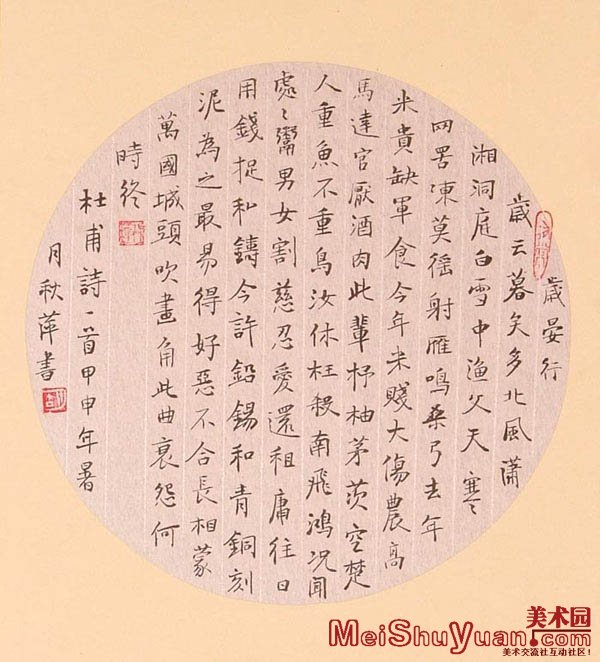 歲晏行
歲云暮矣多北風瀟
湘洞庭白雪中漁父天寒
网罟凍莫徭射雁鳴桑弓去年
米貴缺軍食今年米賤大傷農高
馬達官厭酒肉此輩杼柚茅茨空楚
人重魚不重鳥汝休枉殺南飛鴻況聞
處〻鬻男女割慈忍愛還租庸往日
用錢捉私鑄今許鉛錫和青銅刻
泥為之最易得好惡不合長相蒙
萬國城頭吹畫角此曲哀怨何
時終
杜甫詩一首甲申年暑
月秋萍書
美术园
MeiShuYuan.com
美术交流社互动社区!